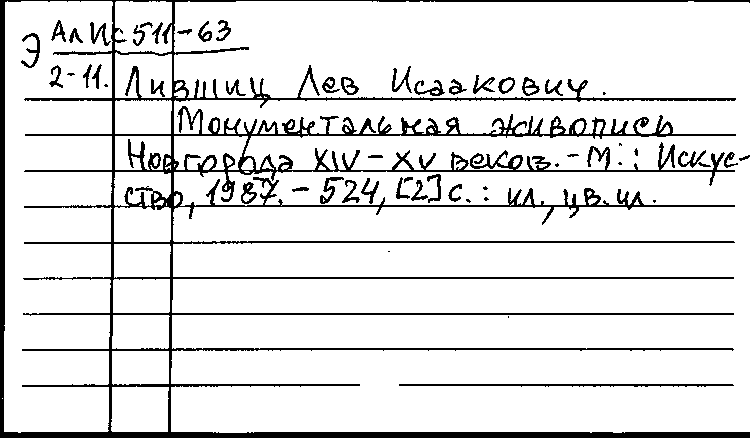 Э АлИс511-63
2-11. Лившиц Лев Исаакович.
Монументальная живопись
Новгорода XIV-XV веков.-М.: Искус-
ство, 1987.-524, [2] с.: ил., цв. ил.